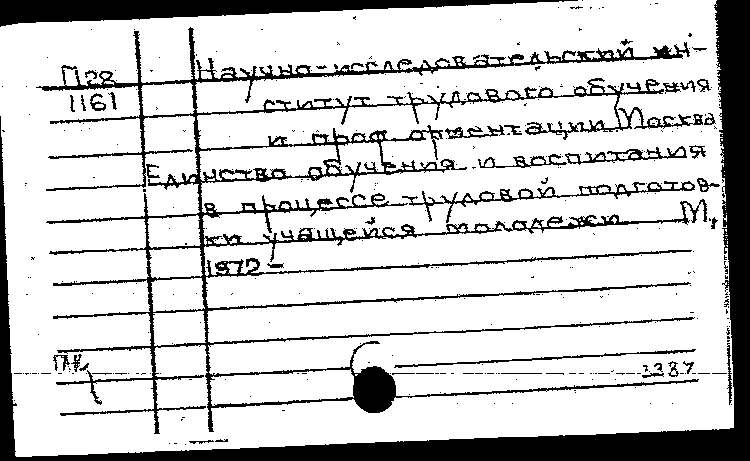 П28
1161
Научно-исследовательский ин-
ститут трудового обучения
и проф. ориентации Москва
Единство обучения и воспитания
в процессе трудовой подготов-
ки учащейся молодежи. М,
1972 -
2387